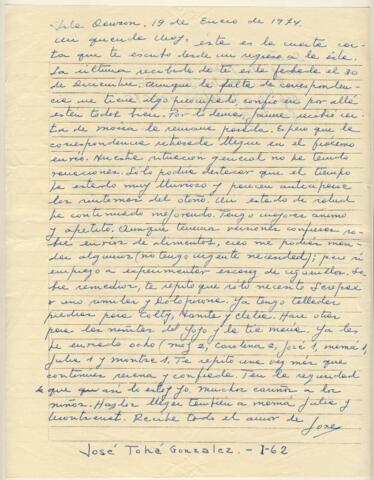 Isla Dawson, 19 de Enero de 1974
Mi querida Moy, esta es la cuarta car-
ta que te escribo desde mi regreso a la isla.
La última recibida de ti está fechada el 30
de Diciembre. Aunque la falta de corresponden-
cia me tiene algo preocupado, confío en que allá
estén todos bien. Por lo demás, Jaime recibió car-
ta de Moisa la semana pasada. Espero que la
correspondencia rebasada llegue en el próximo
envío. Nuestra situación general no ha tenido
variaciones. Sólo puedo destacar que el tiempo
ha estado muy lluvioso y parecen anticiparse
los síntomas del otoño. Mi estado de salud
ha continuado mejorando. Tengo mejores ánimo
y apetito. Aunque tenemos versiones confusas so-
bre envíos de alimentos, creo me podrías man-
dar algunos (no tengo urgente necesidad); pero sí
empiezo a experimentar escasez de cigarrillos. So-
bre remedios, te repito que sólo necesito
o uno similar y . Ya tengo talladas
piedras para Colty, y Clelia. Haré otras
para los niñitos del Yoyo y la tía María. Ya les
he enviado ocho (moy 2, Carolina 2, José 1, mamá 1,
Julia 1 y montse 1. Te repito una vez más que
continúes serena y confiada. Ten la seguridad
de que así lo estoy yo. Muchos cariños a los
niños. Hazlos llegar también a mamá, Julia y
Montserrat. Recibe todo el amor de
José
José Tohá Gonzalez. - I-62